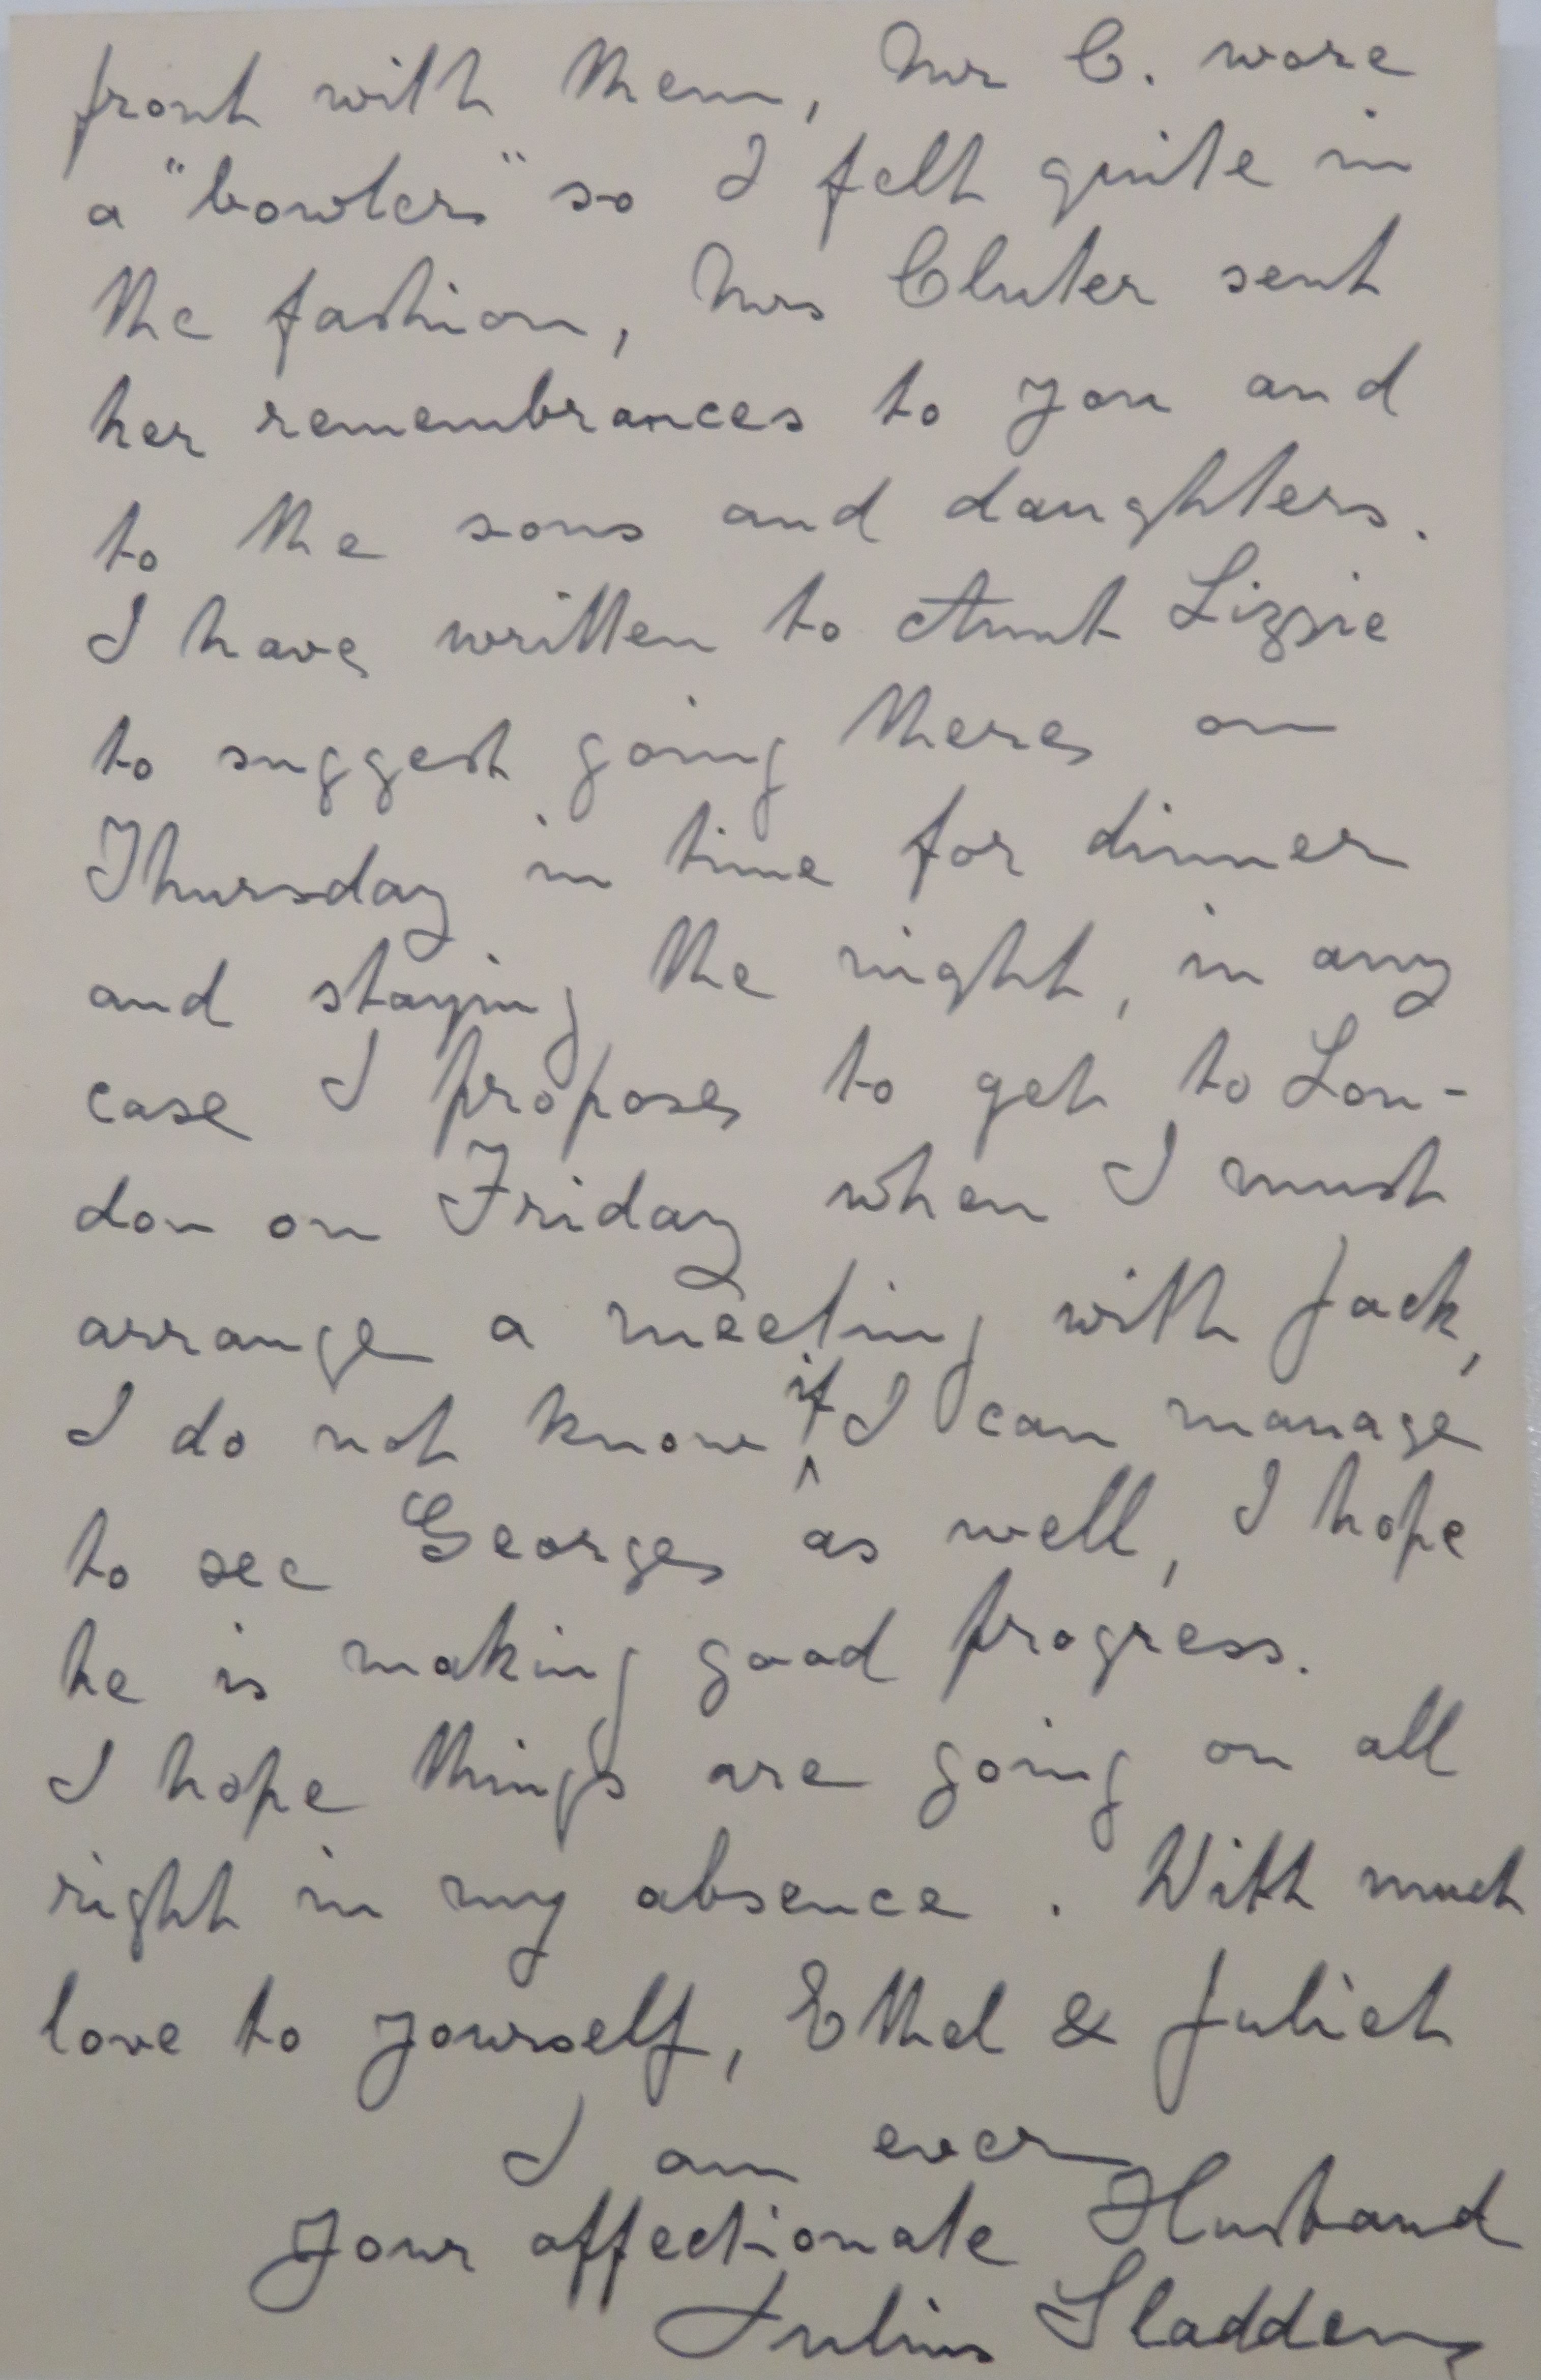 front with them, Mr C. wore
a "bowler" so I felt quite in
the fashion, Mrs Cluter sent
her remembrances to you and
to the sons and daughters.
I have written to Aunt Lizzie
to suggest going there on
Thursday in time for dinner
and staying the night, in any
case I propose to get to Lon-
don on Friday when I must
arrange a meeting with Jack,
I do not know if I can manage
to see George as well, I hope
he is making good progress.
I hope things are going on all
right in my absence. With much
love to yourself, Ethel & Juliet
I am ever
Your affectionate Husband
Julius Sladden